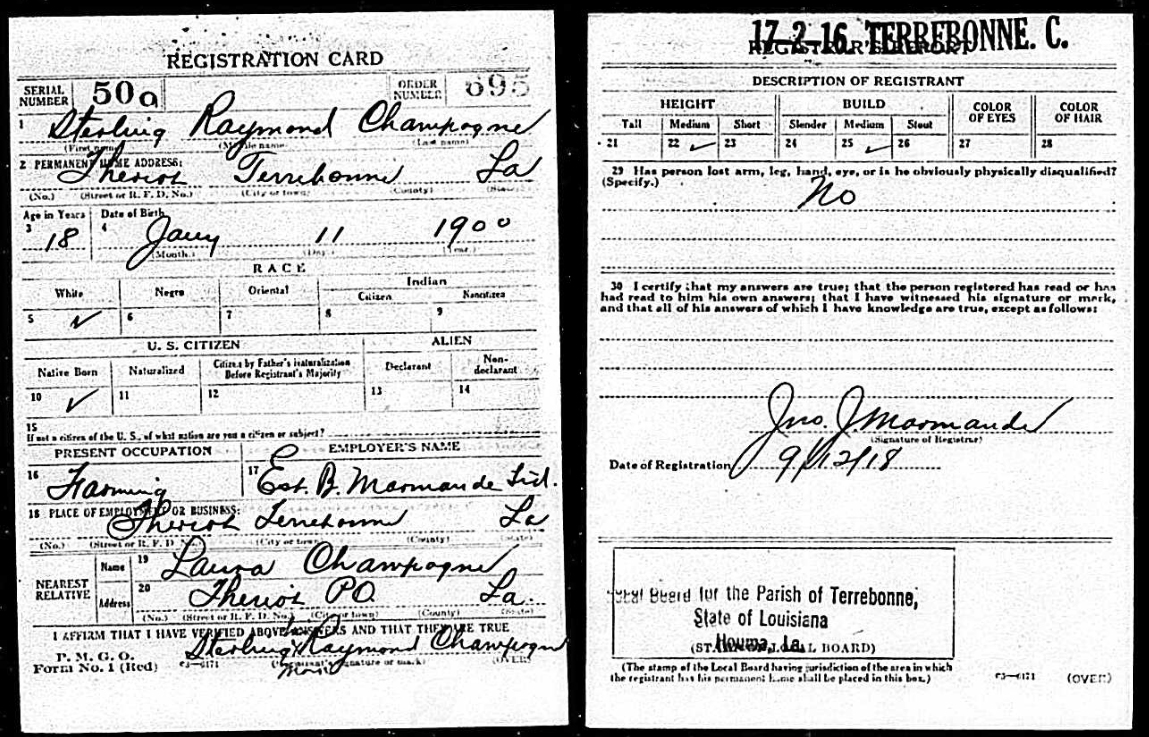 REGISTRATION CARD
SERIAL NUMBER 509 ORDER NUMBER 695
1 Sterling Raymond Champagne
(First name) (Middle name) (Last name)
2 PERMANENT HOME ADDRESS:
Theriot Terrebonne La
(No.) (Street or R. F. D. No.) (City or town) (County) (State)
Age in Years Date of Birth
3 18 4 Jany 11 1900
(Month.) (Day.) (Year.)
RACE
White Negro Oriental Indian
Citizen Noncitizen
5 ✓ 6 7 8 9
U. S. CITIZEN ALIEN
Native Born Naturalized Citizen by Father's Naturalization Before Registrant's Majority Declarant Non-declarant
10 ✓ 11 12 13 14
15
If not a citizen of the U. S., of what nation are you a citizen or subject?
PRESENT OCCUPATION EMPLOYER'S NAME
16 Farming 17 Est. B. Marmande Ltd.
18 PLACE OF EMPLOYMENT OR BUSINESS:
Theriot Terrebonne La
(No.) (Street or R. F. D. No.) (City or town) (County) (State)
NEAREST RELATIVE Name 19 Laura Champagne
Address 20 Theriot PO. La.
(No.) (Street or R. F. D. No.) (City or town) (County) (State)
I AFFIRM THAT I HAVE VERIFIED ABOVE ANSWERS AND THAT THEY ARE TRUE
P. M. G. O.
Form No. 1 (Red) c3—6171 Sterling Raymond Champagne
(Registrant's signature or mark) (OVER)
17-2-16 TERREBONNE. C.
REGISTRAR'S REPORT
DESCRIPTION OF REGISTRANT
HEIGHT BUILD COLOR OF EYES COLOR OF HAIR
Tall Medium Short Slender Medium Stout
21 22 ✓ 23 24 25 ✓ 26 27 28
29 Has person lost arm, leg, hand, eye, or is he obviously physically disqualified?
(Specify.) No
30 I certify that my answers are true; that the person registered has read or has
had read to him his own answers; that I have witnessed his signature or mark,
and that all of his answers of which I have knowledge are true, except as follows:
Jno. J. Marmande
(Signature of Registrar)
Date of Registration 9/12/18
Local Board for the Parish of Terrebonne,
State of Louisiana
Houma, La.
(STAMP OF LOCAL BOARD)
(The stamp of the Local Board having jurisdiction of the area in which
the registrant has his permanent home shall be placed in this box.)
c3—6171 (OVER)